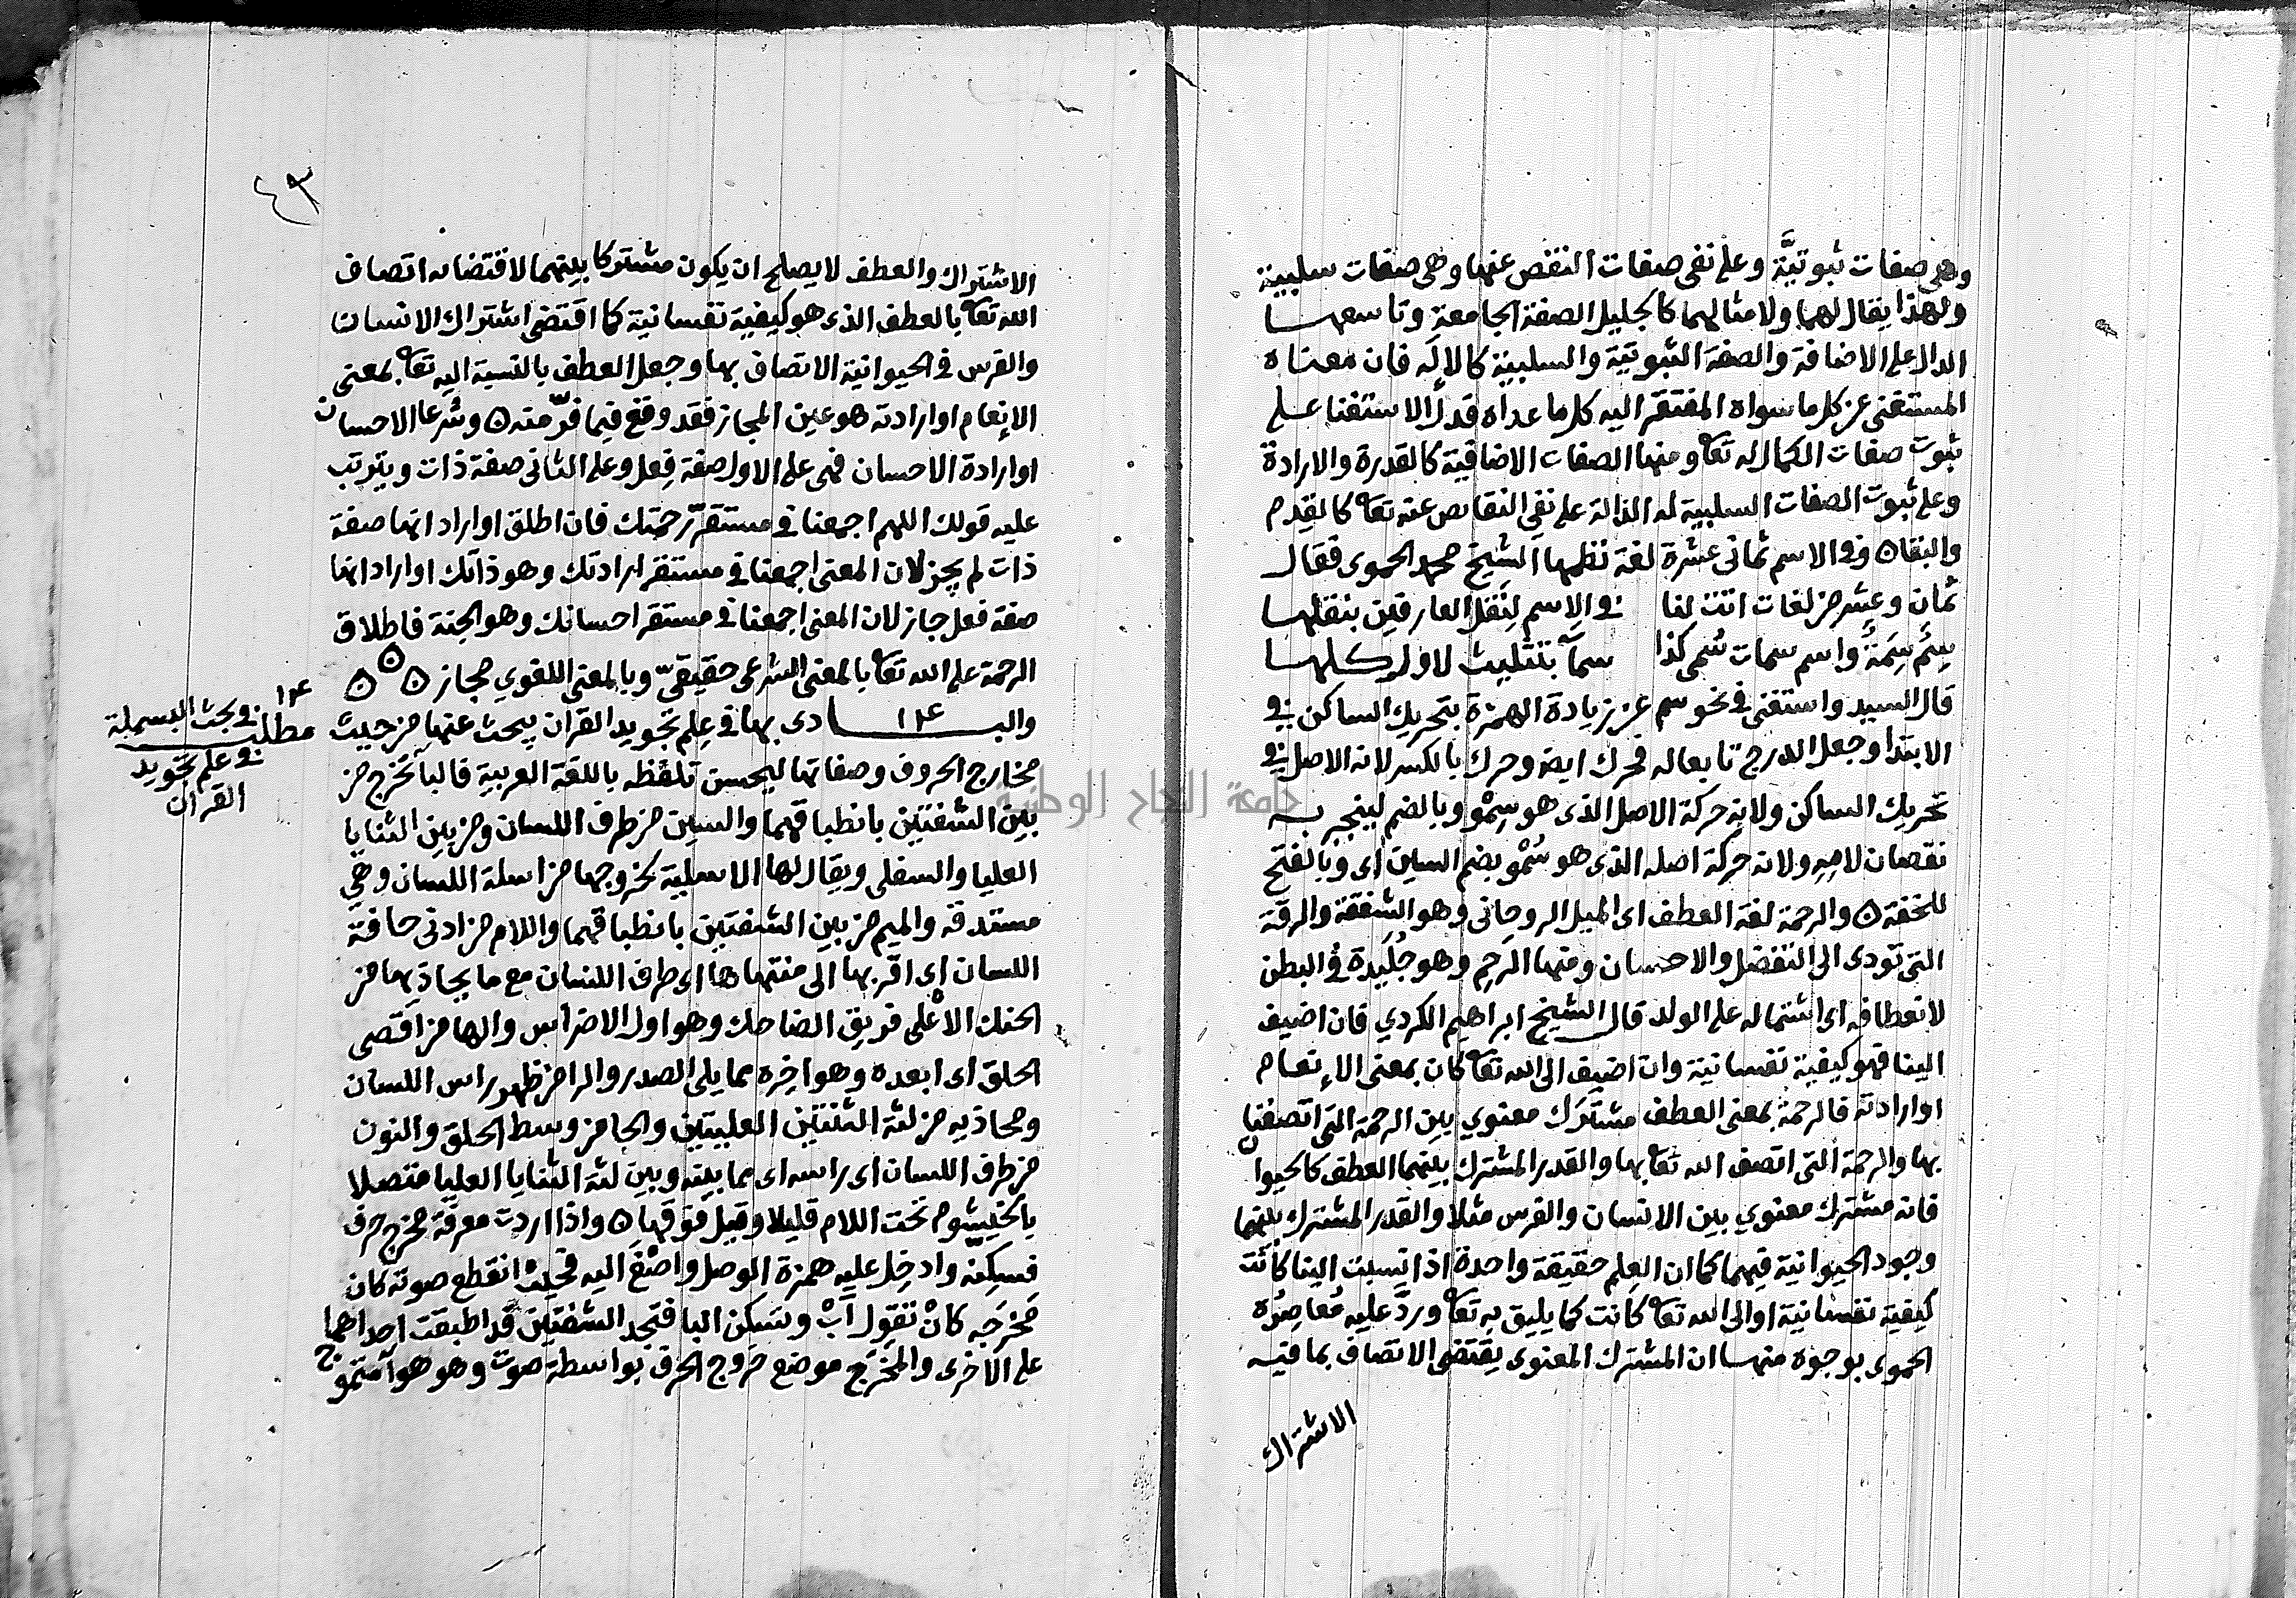 وهي صفات ثبوتيَّة وعلى نفى صفات النقص عنها وهى صفات سلبية
ولهذا يقال لهما ولامثالهما كالجليل الصفة الجامعة وتاسعها
الدال على الاضافة والصفة الثبوتية والسلبية كالالَه فان معناه
المستغنى عن كل ما سواه المفتقر اليه كل ما عداه فدل الاستغنا على
ثبوت صفات الكمال له تعا ومنها الصفات الاضافية كالقدرة والارادة
وعلى ثبوت الصفات السلبية له الدالة على نفى النقايص عنه تعا كالقدم
والبقا ٥ وفى الاسم ثمانى عشرة لغة نظمها الشيخ محمد الحموى فقال
ثمان وعشر من لغات اتتنا لنا فى الاسم لنقل العارفين بنقلها
سِمٌ سِمَةٌ واسم سمات سُمى كذا سمآ بتثليث لاول كلها
قال السيد واستغنى فى نحو سم عن زيادة الهمزة بتحريك الساكن فى
الابتدا وجعل الدرج تابعا له فحرك اية وحرك بالكسر لانه الاصل فى
تحريك الساكن ولانه حركة الاصل الذى هو سِمْو وبالضم لينجبر به
نقصان لامِهِ ولانه حركة اصله الذى هو سُمْو بضم السين اى وبالفتح
للخفة ٥ والرحمة لغة العطف اى الميل الروحانى وهو الشفقة والرقة
التى تودى الى التفضل والاحسان ومنها الرحِم وهو جُلَيدة فى البطن
لانعطافه اى اشتماله على الولد قال الشيخ ابراهيم الكردي فان اضيف
الينا فهو كيفية نفسانية وان اضيف الى الله تعا كان بمعنى الاِنعام
او ارادته فالرحمة بمعنى العطف مشترَك معنوي بين الرحمة التى اتصفنا
بها والرحمة التى اتصف الله تعا بها والقدر المشترك بينهما العطف كالحيوان
فانه مشترك معنوي بين الانسان والفرس مثلا والقدر المشترك بينهما
وجود الحيوانية فيهما كما ان العِلم حقيقة واحدة اذا نسبت الينا كانت
كيفية نفسانية او الى الله تعا كانت كما يليق به تعا وردَّ عليه مُعاصِرُه
الحموى بوجوه منها ان المشترك المعنوى يقتضى الاتصاف بما فيه
الاشتراك
٤٣
الاشتراك والعطف لا يصلح ان يكون مشتركا بينهما لاقتضائه اتصاف
الله تعا بالعطف الذى هو كيفية نفسانية كما اقتضى اشتراك الانسان
والفرس فى الحيوانية الاتصاف بها وجعل العطف بالنسبة اليه تعا بمعنى
الاِنعام او ارادته هو عين المجاز فقد وقع فيما فرّ منه ٥ وشرعا الاحسان
او ارادة الاحسان فهى على الاول صفة فِعل وعلى الثانى صفة ذات ويترتب
عليه قولك اللهم اجمعنا فى مستقرّ رحمتك فان اطلق او اراد انها صفة
ذات لم يجز لان المعنى اجمعنا فى مستقر ارادتك وهو ذاتك او اراد انها
صفة فعل جاز لان المعنى اجمعنا فى مستقر احسانك وهو الجنة فاطلاق
الرحمة على الله تعا بالمعنى الشرعى حقيقىّ وبالمعنى اللغوي مجاز ٥ ٥ ٥
والبادى بها فى عِلم تجويد القران يبحث عنها من حيث
١٣ع
١٣ع
مطلب فى بحث البسملة
فى علم تجويد
القران
مخارج الحروف وصفاتها ليحسن تلفظه باللغة العربية فالبا تخرج من
بين الشفتين بانطباقهما والسين من طرف اللسان ومن بين الثنايا
العليا والسفلى ويقال لها الاسلية لخروجها من اسلة اللسان وهى
مستدقه والميم من بين الشفتين بانطباقهما واللام من ادنى حافة
اللسان اى اقربها الى منتهاها اى طرف اللسان مع ما يحاذيها من
الحنك الاعْلى فويق الضاحك وهو اول الاضراس والها من اقصى
الحلق اى ابعده وهو اخِره مما يلى الصدر والرا من ظهر راس اللسان
ومحاذيه من لثة الثنتين العليتين والحا من وسط الحلق والنون
من طرف اللسان اى راسه اى مما بينه وبين لثة الثنايا العليا متصلا
بالخيشوم تحت اللام قليلا وقيل فوقها ٥ واذا اردت معرفة مخرج حرف
فسكِنّه وادخِل عليه همزة الوصل واصْغَ اليه فحيث انقطع صوته كان
مَخْرَجَه كانْ تقول اَبْ وتسكن البا فتجد الشفتين قد اطبقت احداهما
على الاخرى والمخرج موضع خروج الحرف بواسطة صوت وهو هوآ متموج
جامعة النجاح الوطنية